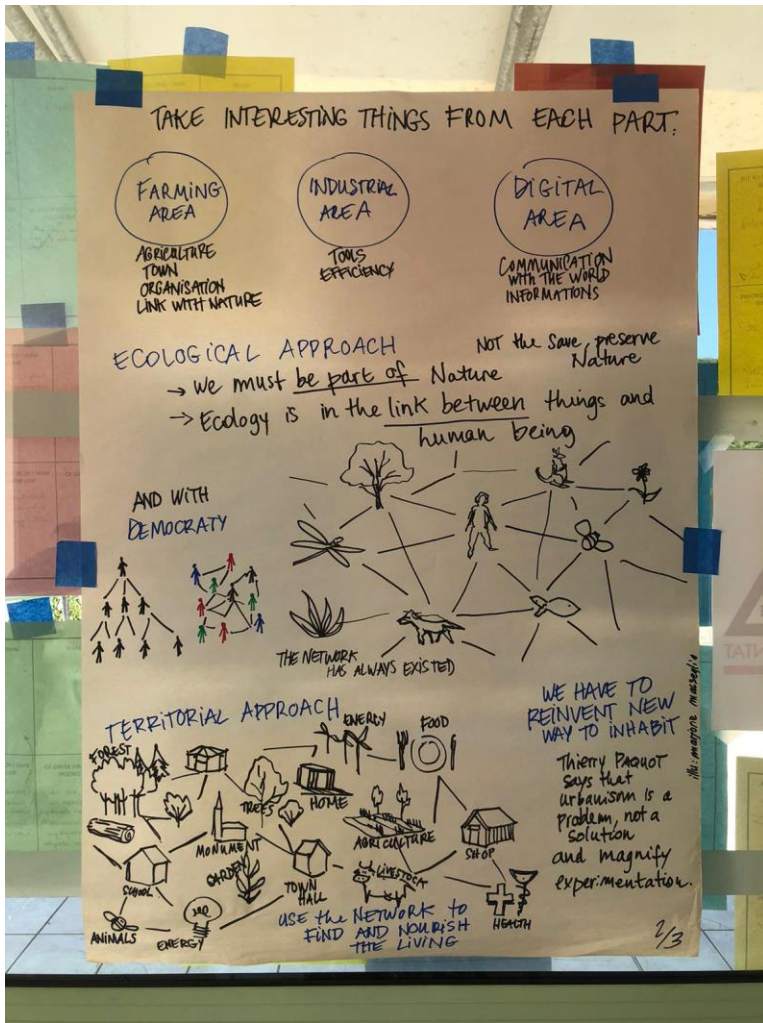 TAKE INTERESTING THINGS FROM EACH PART.
FARMING
AREA
AGRICULTURE
TOWN
ORGANISATION
LINK WITH NATURE
INDUSTRIAL
AREA
TOOLS
EFFICIENCY
DIGITAL
AREA
COMMUNICATION
WITH THE WORLD
INFORMATIONS
ECOLOGICAL APPROACH
NOT the save, preserve
Nature
→ we must be part of Nature
→ Ecology is in the link between things and
human being
AND WITH
DEMOCRATY
THE NETWORK
HAS ALWAYS EXISTED
TERRITORIAL APPROACH
FOREST
TREES
ENERGY
FOOD
HOME
MONUMENT
AGRICULTURE
SHOP
SCHOOL
GARDEN
TOWN
HALL
LIVESTOCK
HEALTH
ANIMALS
ENERGY
USE the NETWORK to
FIND AND NOURISH
THE LIVING
WE HAVE TO
REINVENT NEW
WAY TO INHABIT
Thierry PAQUOT
says that
urbanism is a
problem, not a
solution
and magnify
experimentation.
illu: marjorie masseglia
2/3